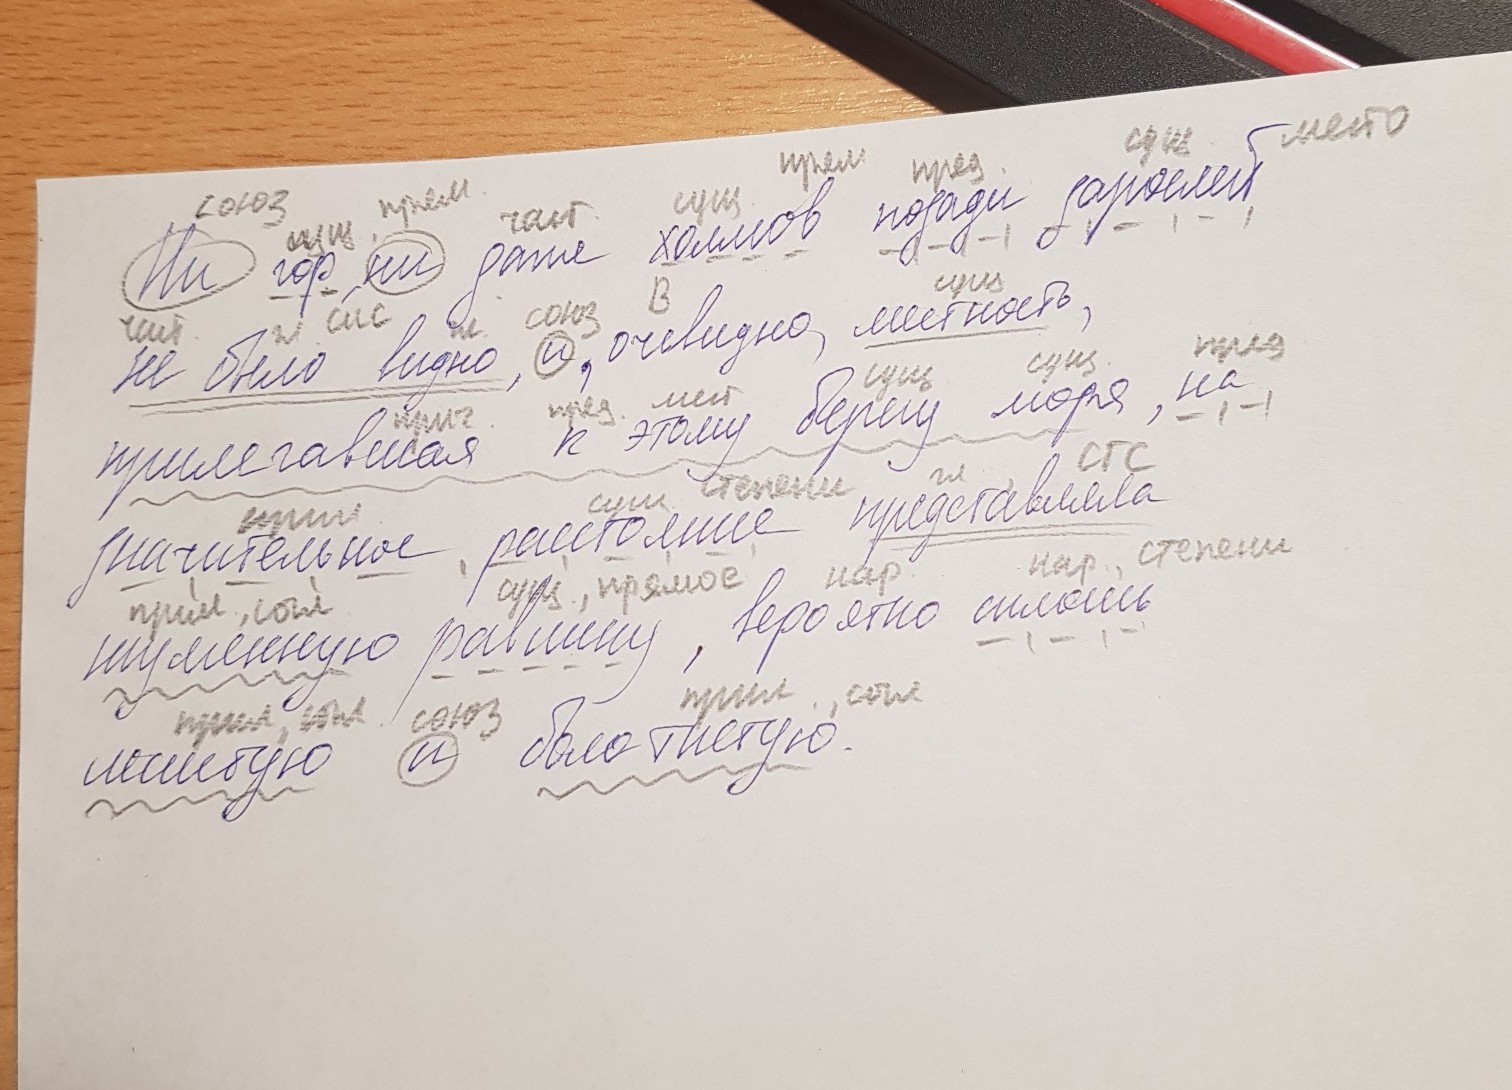 сущ. место
прям пред.
союз сущ, прям. част. сущ.
Ни гор, ни даже холмов позади зарослей
част гл СИС гл. союз В сущ
не было видно, и, очевидно, местность,
прич пред. мест сущ сущ. пред
прилегавшая к этому берегу моря, на
прил сущ. степени гл СГС
значительное расстояние представляла
прил, согл сущ., прямое нар. нар., степени
низменную равнину, вероятно сплошь
прил, согл союз прил., согл
и болотистую.